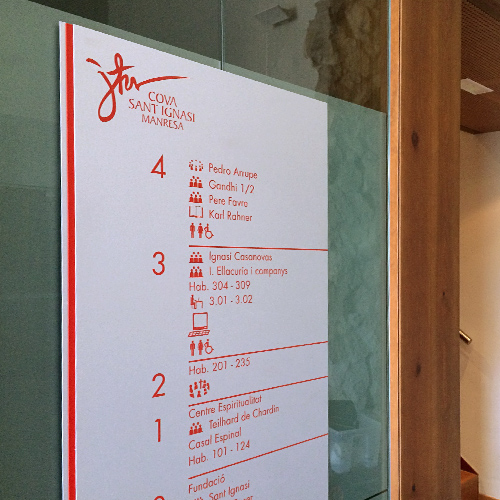 COVA
SANT IGNASI
MANRESA
4
Pedro Arrupe
Gandhi 1/2
Pere Favre
Karl Rahner
3
Ignasi Casanovas
I. Ellacuría i companys
Hab. 304 - 309
3.01 - 3.02
Hab. 201 - 235
2
Centre Espiritualitat
1
Teilhard de Chardin
Casal Espinal
Hab. 101 - 124
Fundació
Sant Ignasi